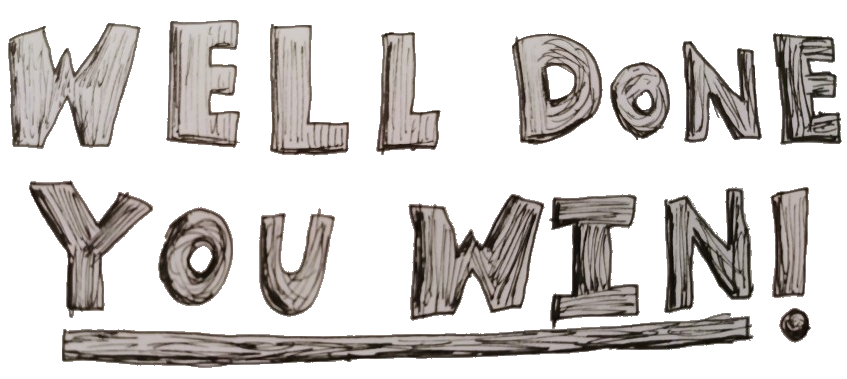 WELL DONE
YOU WIN!